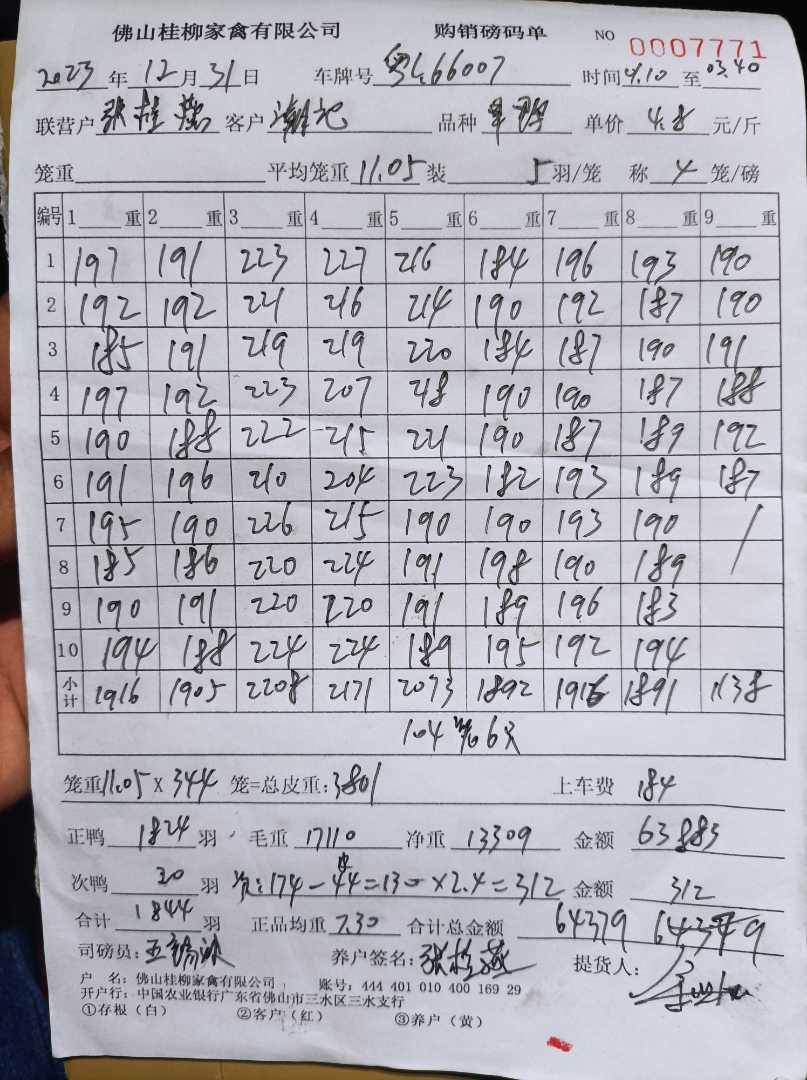 佛山桂柳家禽有限公司 购销磅码单 NO 0007771
2023 年 12 月 31 日 车牌号 粤L66007 时间 4.10 至 03.40
联营户 张桂燕 客户 潮记 品种 单价 4.8 元/斤
笼重 平均笼重 11.05 装 5 羽/笼 称 4 笼/磅
编号 1 重 2 重 3 重 4 重 5 重 6 重 7 重 8 重 9 重
1 197 191 223 227 216 184 196 193 190
2 192 192 221 216 214 190 192 187 190
3 185 191 219 219 220 184 187 190 191
4 197 192 223 207 218 190 190 187 188
5 190 188 222 215 221 190 187 189 192
6 191 196 210 204 223 182 193 189 187
7 195 190 226 215 190 190 193 190
8 185 186 220 224 191 198 190 189
9 190 191 220 220 191 189 196 183
10 194 188 224 224 189 195 192 194
小计 1916 1905 2208 2171 2073 1892 1916 1891 1138
104 6只
笼重 11.05 X 344 笼=总皮重: 3801 上车费 184
正鸭 1824 羽 毛重 17110 净重 13309 金额 63883
次鸭 20 羽 次: 174 - 44 = 130 × 2.4 = 312 金额 312
合计 1844 羽 正品均重 7.30 合计总金额 64379 64379
司磅员: 养户签名: 张桂燕 提货人:
户 名: 佛山桂柳家禽有限公司 账号: 444 401 010 400 169 29
开户行: 中国农业银行广东省佛山市三水区三水支行
①存根（白） ②客户（红） ③养户（黄）